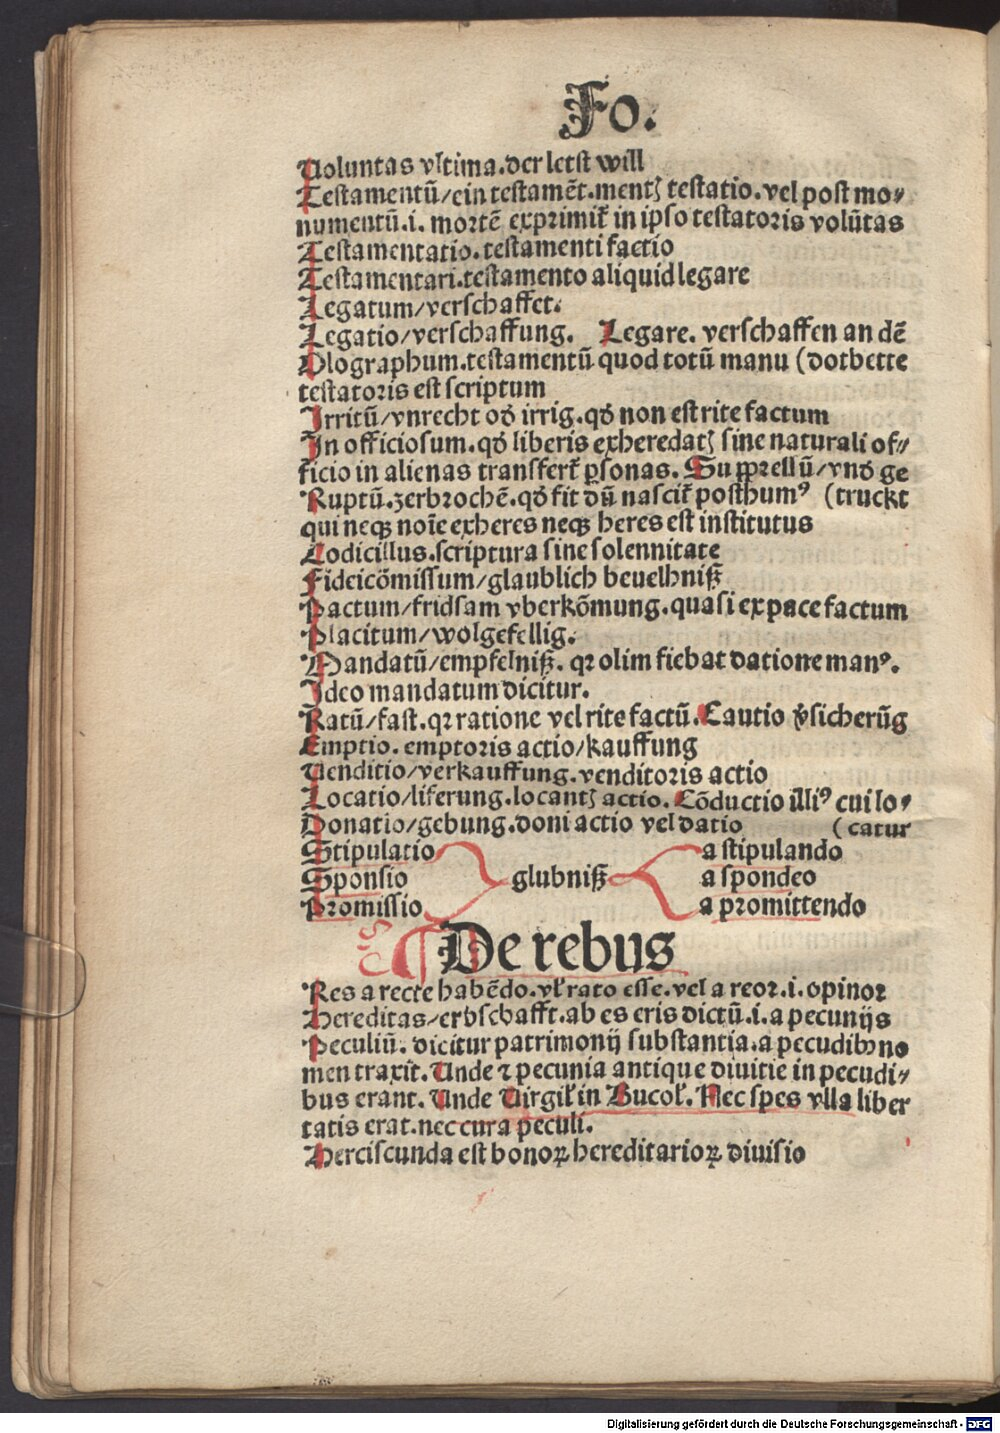 Fo.
Voluntas vltima.der letst will
Testamentū/ein testamēt.mentꝫ testatio.vel post mo⸗
numentū.i. mortē exprimit̄ in ipso testatoris volūtas
Testamentatio.testamenti factio
Testamentari.testamento aliquid legare
Legatum/verschaffet.
Legatio/verschaffung. Legare. verschaffen an dē
Olographum.testamentū quod totū manu (dotbette
testatoris est scriptum
Irritū/vnrecht od̄ irrig.qd̄ non est rite factum
In officiosum.qd̄ liberis exheredatꝫ sine naturali of⸗
ficio in alienas transfert̄ ꝑsonas. Suꝓrellū/vnd̄ ge
Ruptū.zerbrochē.qd̄ fit dū nascit̄ posthumꝰ (truckt
qui neqꝫ noīe exheres neqꝫ heres est institutus
Codicillus.scriptura sine solennitate
Fideicōmissum/glaublich beuelhniß
Pactum/fridsam vberkōmung.quasi ex pace factum
Placitum/wolgefellig.
Mandatū/empfelniß. qꝛ olim fiebat datione manꝰ.
Ideo mandatum dicitur.
Ratū/fast.qꝛ ratione vel rite factū.Cautio v̄sicherūg
Emptio. emptoris actio/kauffung
Venditio/verkauffung.venditoris actio
Locatio/liferung.locantꝫ actio. Cōductio illiꝰ cui lo⸗
Donatio/gebung.doni actio vel datio (catur
Stipulatio a stipulando
Sponsio glubniß a spondeo
Promissio a promittendo
De rebus
Res a recte habēdo.vl̄ rato esse.vel a reor.i.opinor
Hereditas/erbschafft.ab es eris dictū.i.a pecunijs
Peculiū. dicitur patrimonij substantia.a pecudibꝫ no
men traxit. Unde ⁊ pecunia antique diuitie in pecudi⸗
bus erant. Unde Virgil̄ in Bucol̄. Nec spes vlla liber
tatis erat.nec cura peculi.
Herciscunda est bonoꝝ hereditarioꝝ diuisio
Digitalisierung gefördert durch die Deutsche Forschungsgemeinschaft - DFG